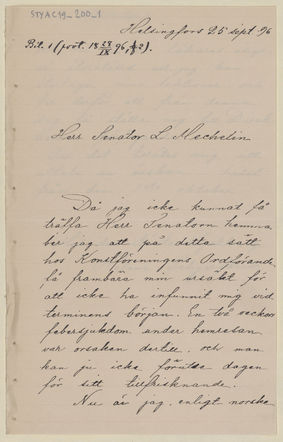 STYAC19_200_1
Helsingfors 25 sept 96
Bil. 1 (prot. 18 28/IX 96, § 2).
Herr Senator L. Mechelin
Då jag icke kunnat få
träffa Herr Senatorn hemma
ber jag att på detta sätt
hos Konstföreningens Ordförande
få frambära min ursäkt för
att icke ha infunnit mig vid
terminens början. En två veckors
febersjukdom under hemresan
var orsaken dertill, och man
kan ju icke förutse dagen
för sitt tillfrisknande.
Nu är jag, enligt norska